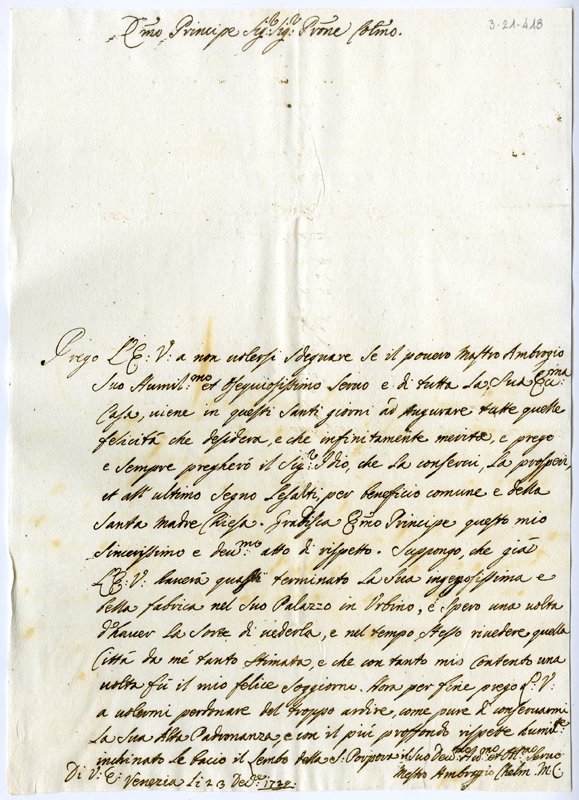 3-21-418
E:mo Principe Sig:r Sig:r Prone Colmo.
Prego L'E: V: a non volersi sdegnare se il povero Mastro Ambrogio
suo Humil:mo et Ossequiosissimo Servo e di tutta La Sua Ecc:ma
Casa, viene in questi Santi giorni ad Augurare tutte quelle
felicità che desidera, e che infinitamente merita, e prego
e sempre pregherò il Sig:r Idio, che La conservi, La prosperi,
et all' ultimo segno L'esalti, per beneficio comune e della
Santa Madre Chiesa. Gradisca E:mo Principe questo mio
sincerissimo e dev:mo atto di rispetto. Suppongo, che già
L'E: V: haverà quasi terminato La sua ingegnosissima e
bella fabrica nel Suo Palazzo in Urbino, e spero una volta
d'haver La Sorte di vederla, e nel tempo stesso rivedere quella
Città da mé tanto stimata, e che con tanto mio Contendo una
volta fù il mio felice soggiorno. Hora per fine prego L'E: V:
a volermi perdonare del troppo ardire, come pure d conservarmi
La Sua Alta Padronanza, e con il più proffondo rispetto humilte
inchinato Le bacio il Lembo della S: Porpora il Suo Dev:mo et Obb:mo Servo
Di V: E: Venezia Li 23 De:re 1728. Mastro Ambrogio M: C: